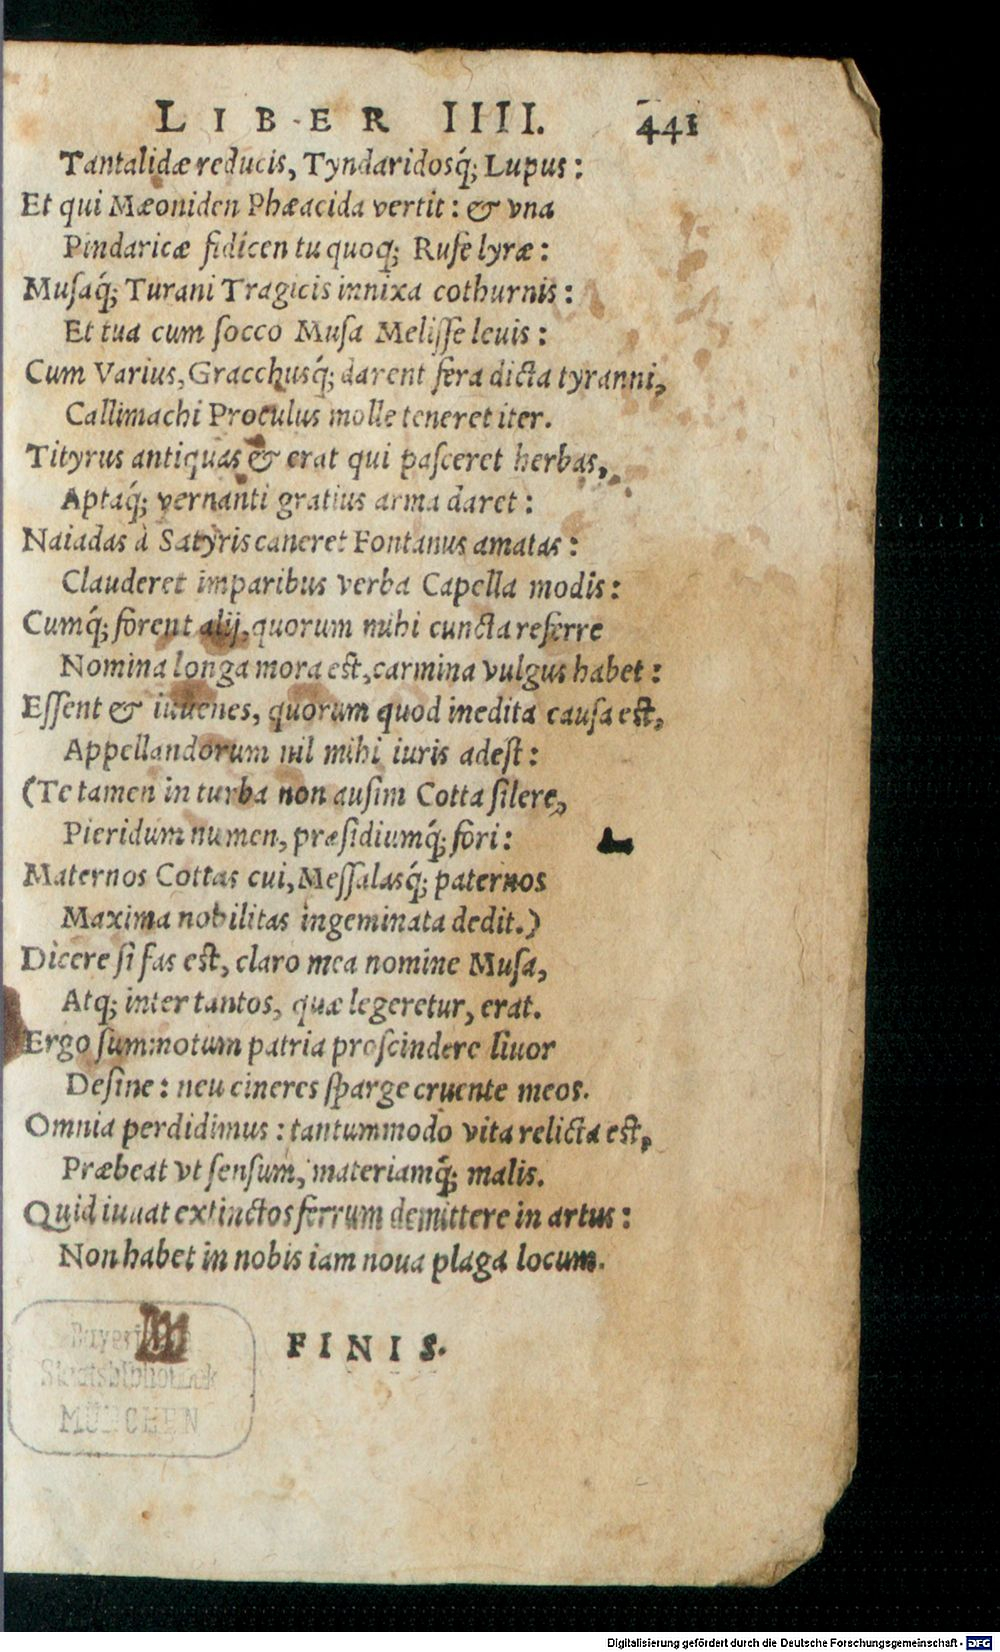 LIBER IIII. 441
Tantalidæ reducis, Tyndaridosq́; Lupus:
Et qui Mæoniden Phæacida vertit: & vna
Pindaricæ fidicen tu quoq; Rufe lyræ:
Musaq́; Turani Tragicis innixa cothurnis:
Et tua cum socco Musa Melisse leuis:
Cum Varius, Gracchusq́; darent fera dicta tyranni,
Callimachi Proculus molle teneret iter.
Tityrus antiquas & erat qui pasceret herbas,
Aptaq́; vernanti gratius arma daret:
Naiadas à Satyris caneret Fontanus amatas:
Clauderet imparibus verba Capella modis:
Cumq́; forent alij, quorum mihi cuncta referre
Nomina longa mora est, carmina vulgus habet:
Essent & iuuenes, quorum quod inedita causa est,
Appellandorum nil mihi iuris adest:
(Te tamen in turba non ausim Cotta silere,
Pieridum numen, præsidiumq́; fori:
Maternos Cottas cui, Messalasq́; paternos
Maxima nobilitas ingeminata dedit.)
Dicere si fas est, claro mea nomine Musa,
Atq; inter tantos, quæ legeretur, erat.
Ergo summotum patria proscindere liuor
Desine: neu cineres sparge cruente meos.
Omnia perdidimus: tantummodo vita relicta est,
Præbeat vt sensum, materiamq́; malis.
Quid iuuat extinctos ferrum demittere in artus:
Non habet in nobis iam noua plaga locum.
FINIS.
Staatsbibliothek
MÜNCHEN
Digitalisierung gefördert durch die Deutsche Forschungsgemeinschaft - DFG